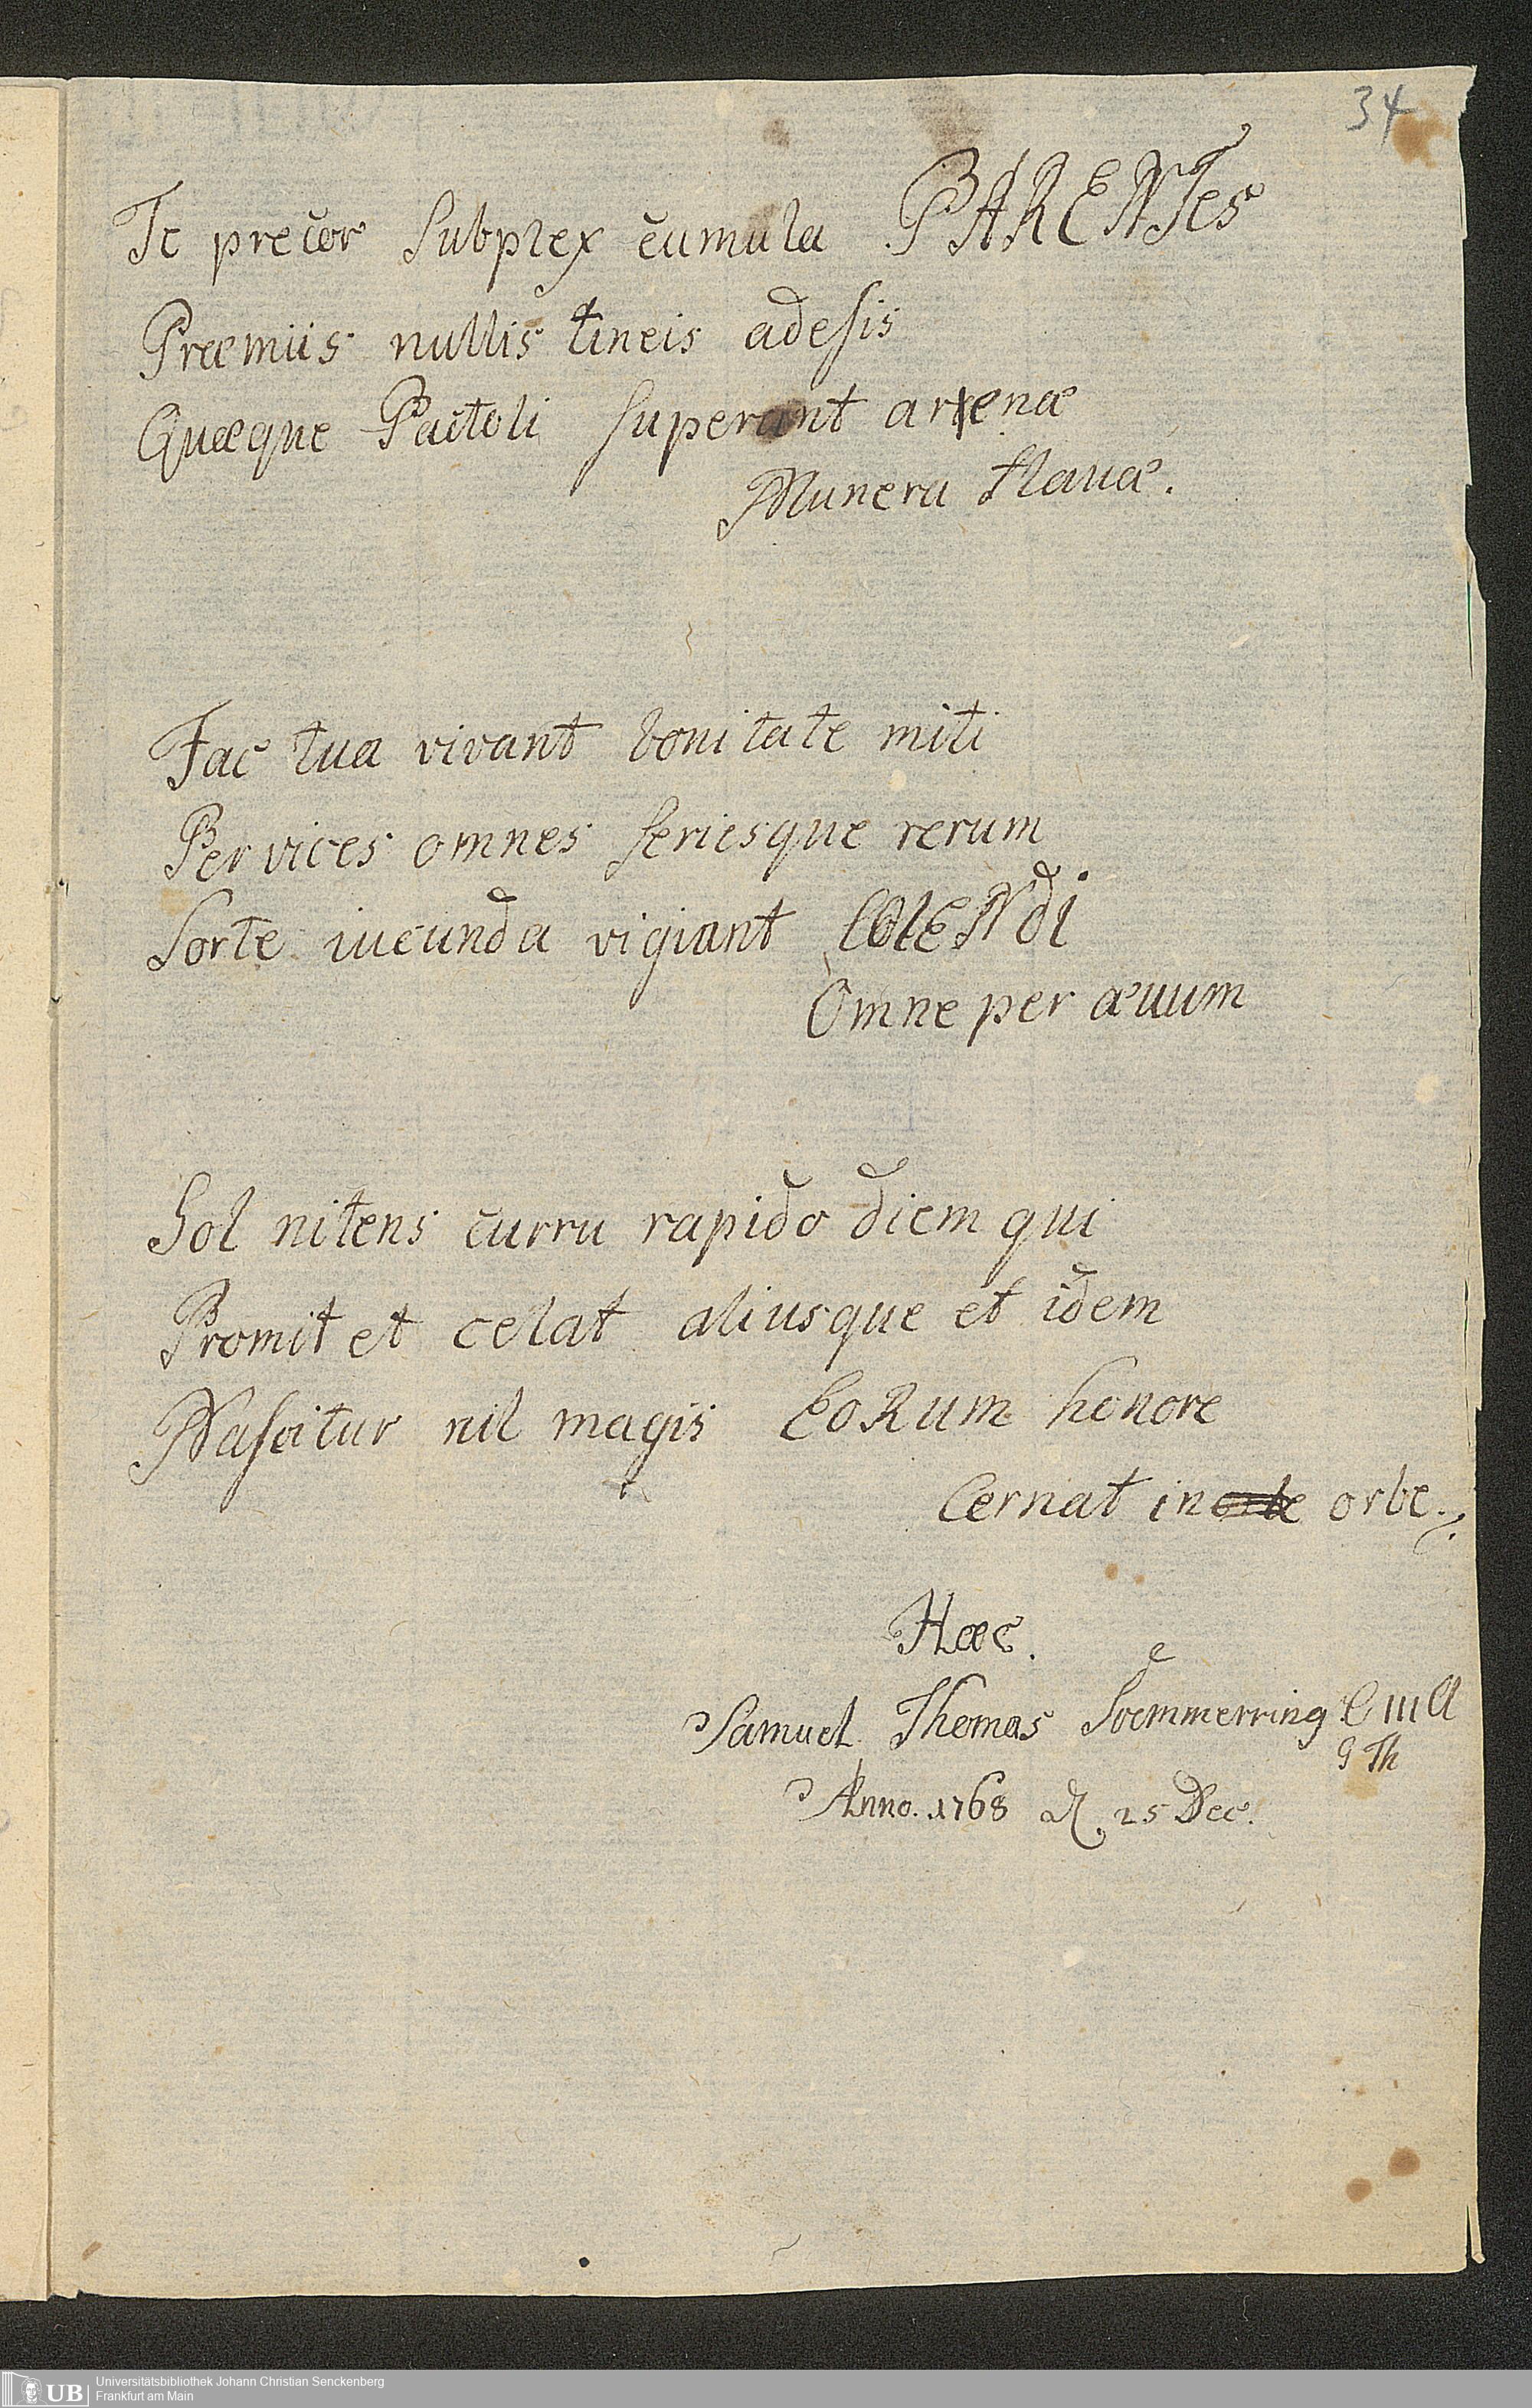 34
Te precor Subplex cumula PARENTes
Præmiis nullis tineis adesis
Quæque Pactoli superant arenæ
Munera flauæ.
Fac tua vivant bonitate miti
Per vices omnes seriesque rerum
Sorte iucunda vigiant COlENdi
Omne per æuum
Sol nitens curru rapido diem qui
Promit et celat aliusque et idem
Nascitur nil magis EoRum honore
Cernat in orbe.
Hæc.
Samuel Thomas Soemmerring C III Cl
9 Th
Anno. 1768 d. 25 Dec.
UB Universitätsbibliothek Johann Christian Senckenberg
Frankfurt am Main